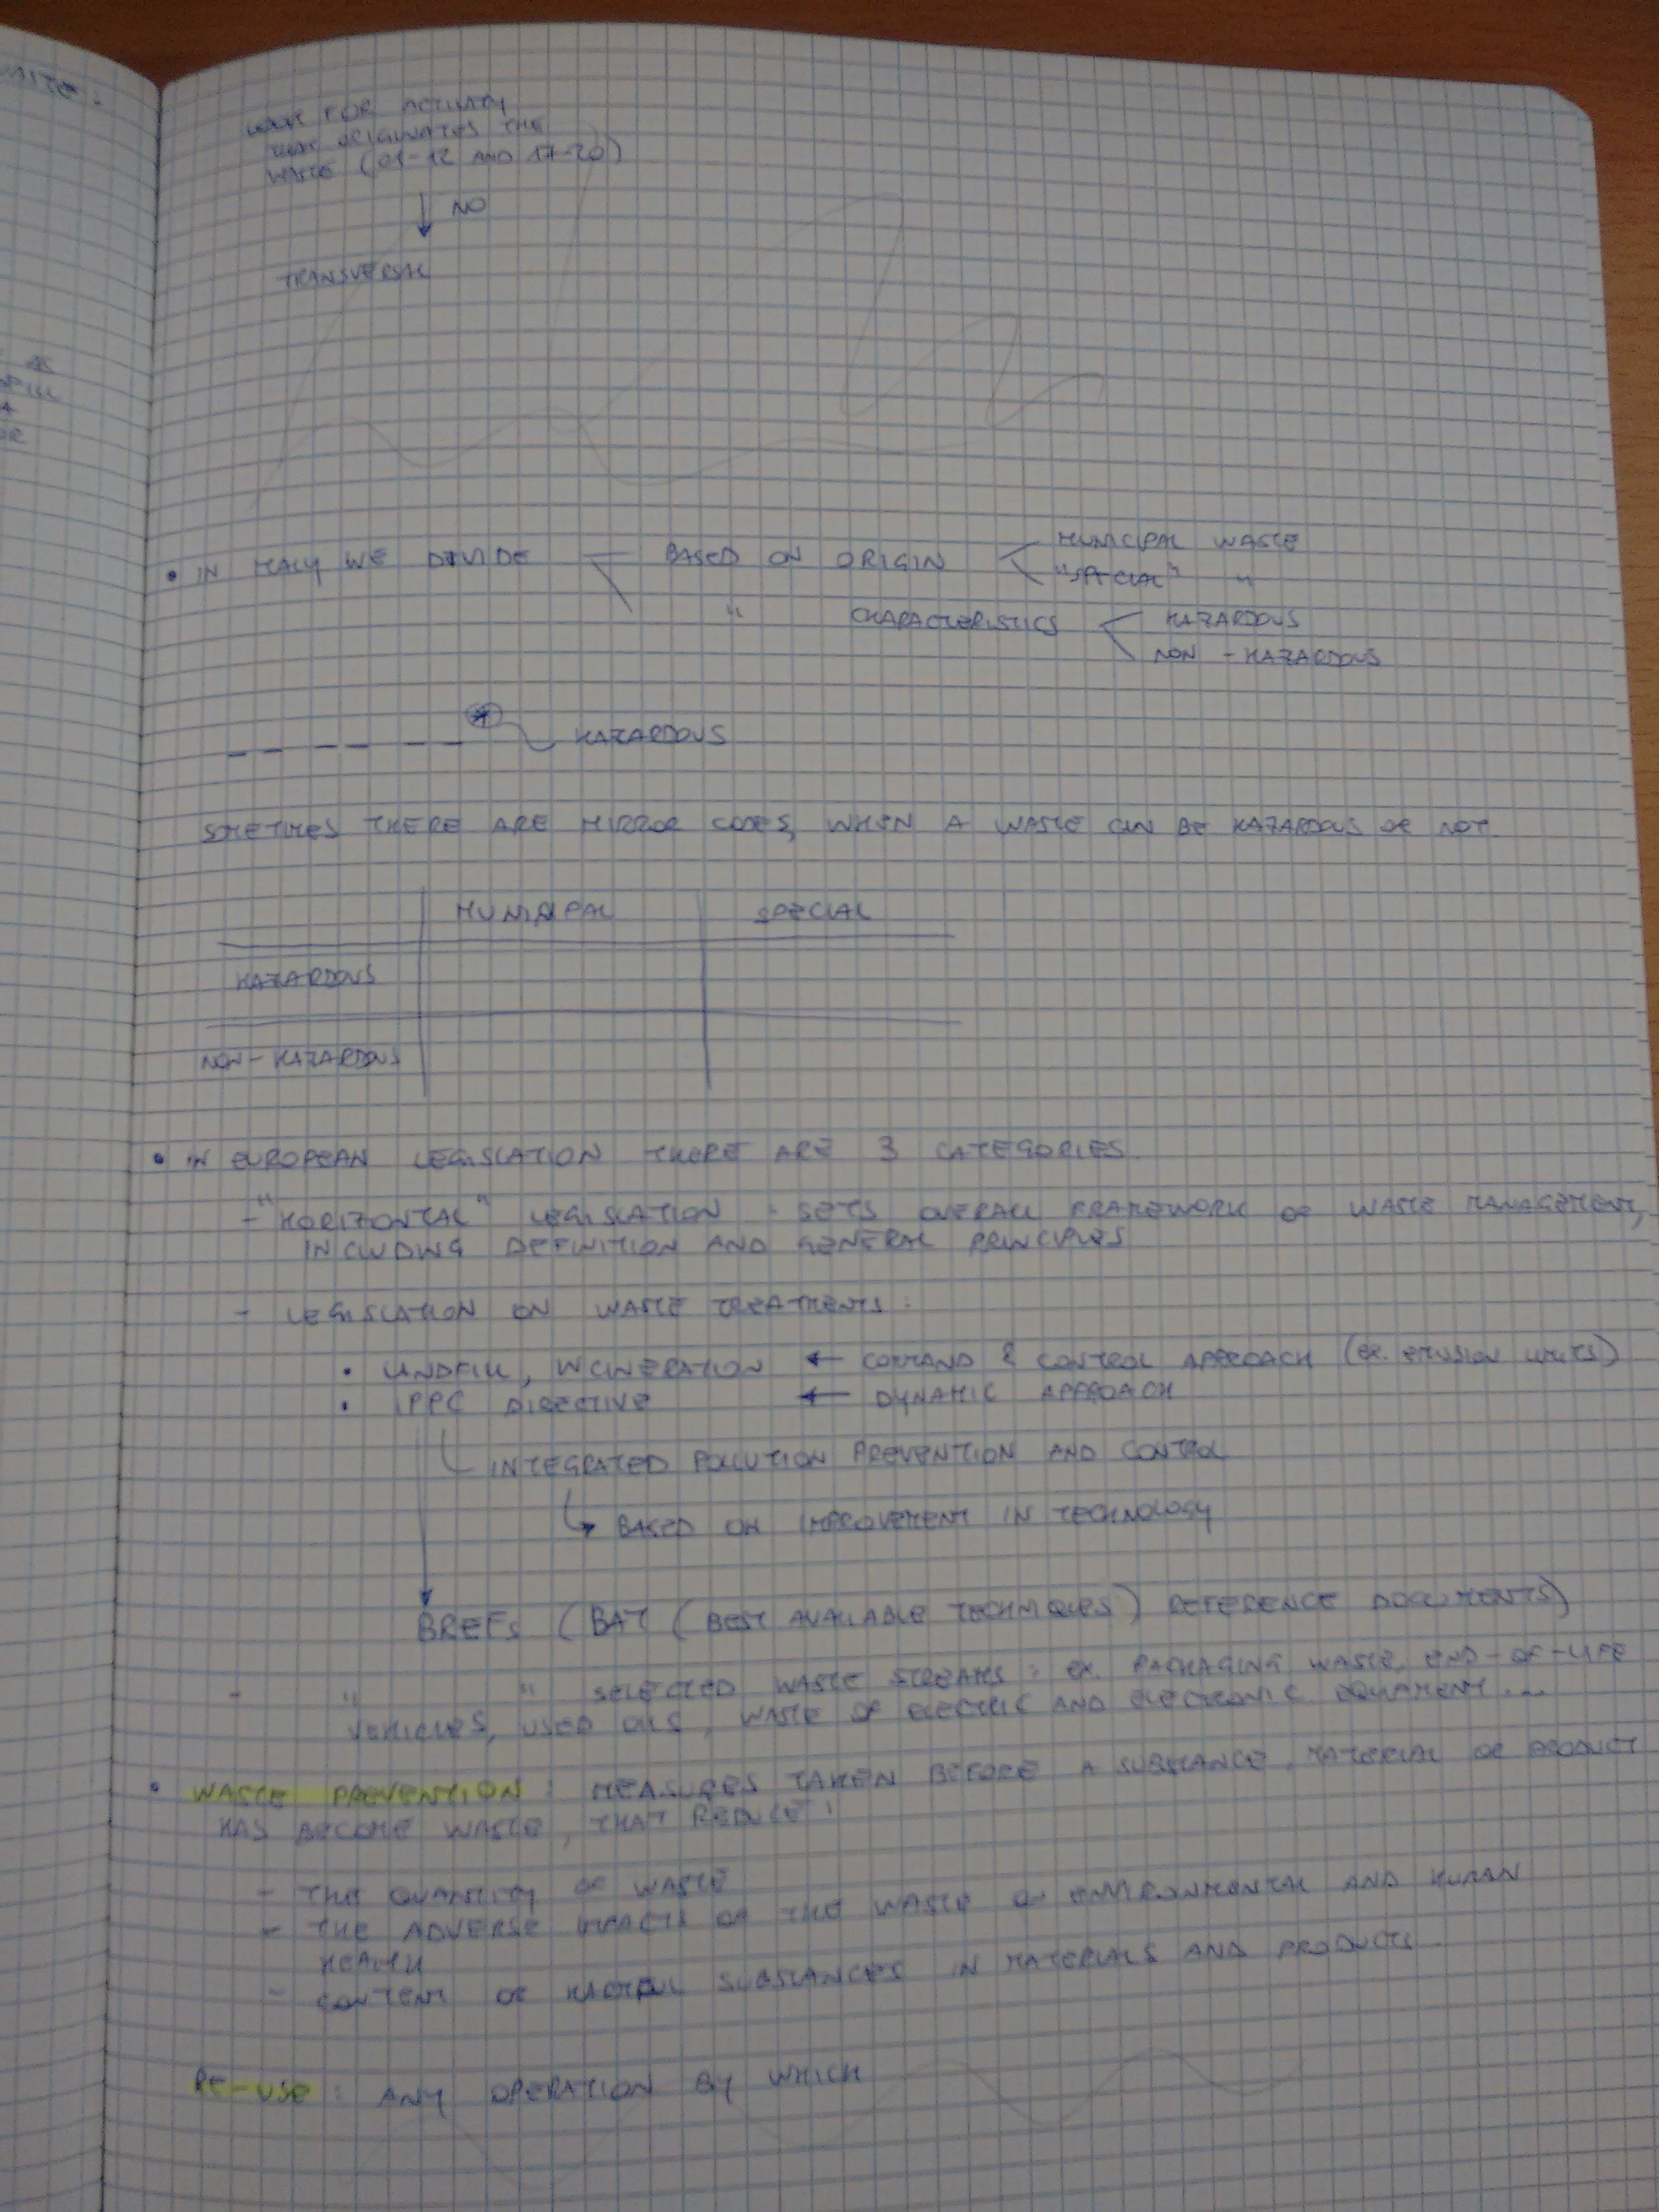 WASTE:
LOOK FOR ACTIVITY
THAT ORIGINATES THE
WASTE (01-12 AND 17-20)
NO
TRANSVERSAL
AS
OR
• IN ITALY WE DIVIDE BASED ON ORIGIN MUNICIPAL WASTE
"SPECIAL" "
" CHARACTERISTICS HAZARDOUS
NON - HAZARDOUS
__ __ __ * HAZARDOUS
SOMETIMES THERE ARE MIRROR CODES, WHEN A WASTE CAN BE HAZARDOUS OR NOT.
MUNICIPAL SPECIAL
HAZARDOUS
NON - HAZARDOUS
• IN EUROPEAN LEGISLATION THERE ARE 3 CATEGORIES
- "HORIZONTAL" LEGISLATION : SETS OVERALL FRAMEWORK OF WASTE MANAGEMENT,
INCLUDING DEFINITION AND GENERAL PRINCIPLES
- LEGISLATION ON WASTE TREATMENTS :
• LANDFILL, INCINERATION ← COMMAND & CONTROL APPROACH (EX. EMISSION LIMITS)
• IPPC DIRECTIVE ← DYNAMIC APPROACH
INTEGRATED POLLUTION PREVENTION AND CONTROL
↳ BASED ON IMPROVEMENT IN TECHNOLOGY
BREFs (BAT (BEST AVAILABLE TECHNIQUES) REFERENCE DOCUMENTS)
- " " SELECTED WASTE STREAMS : EX. PACKAGING WASTE, END-OF-LIFE
VEHICLES, USED OILS, WASTE OF ELECTRIC AND ELECTRONIC EQUIPMENT...
• WASTE PREVENTION : MEASURES TAKEN BEFORE A SUBSTANCE, MATERIAL OR PRODUCT
HAS BECOME WASTE, THAT REDUCE :
- THE QUANTITY OF WASTE
- THE ADVERSE IMPACTS OF THE WASTE ON ENVIRONMENTAL AND HUMAN
HEALTH
- CONTENT OF HARMFUL SUBSTANCES IN MATERIALS AND PRODUCTS.
RE-USE : ANY OPERATION BY WHICH